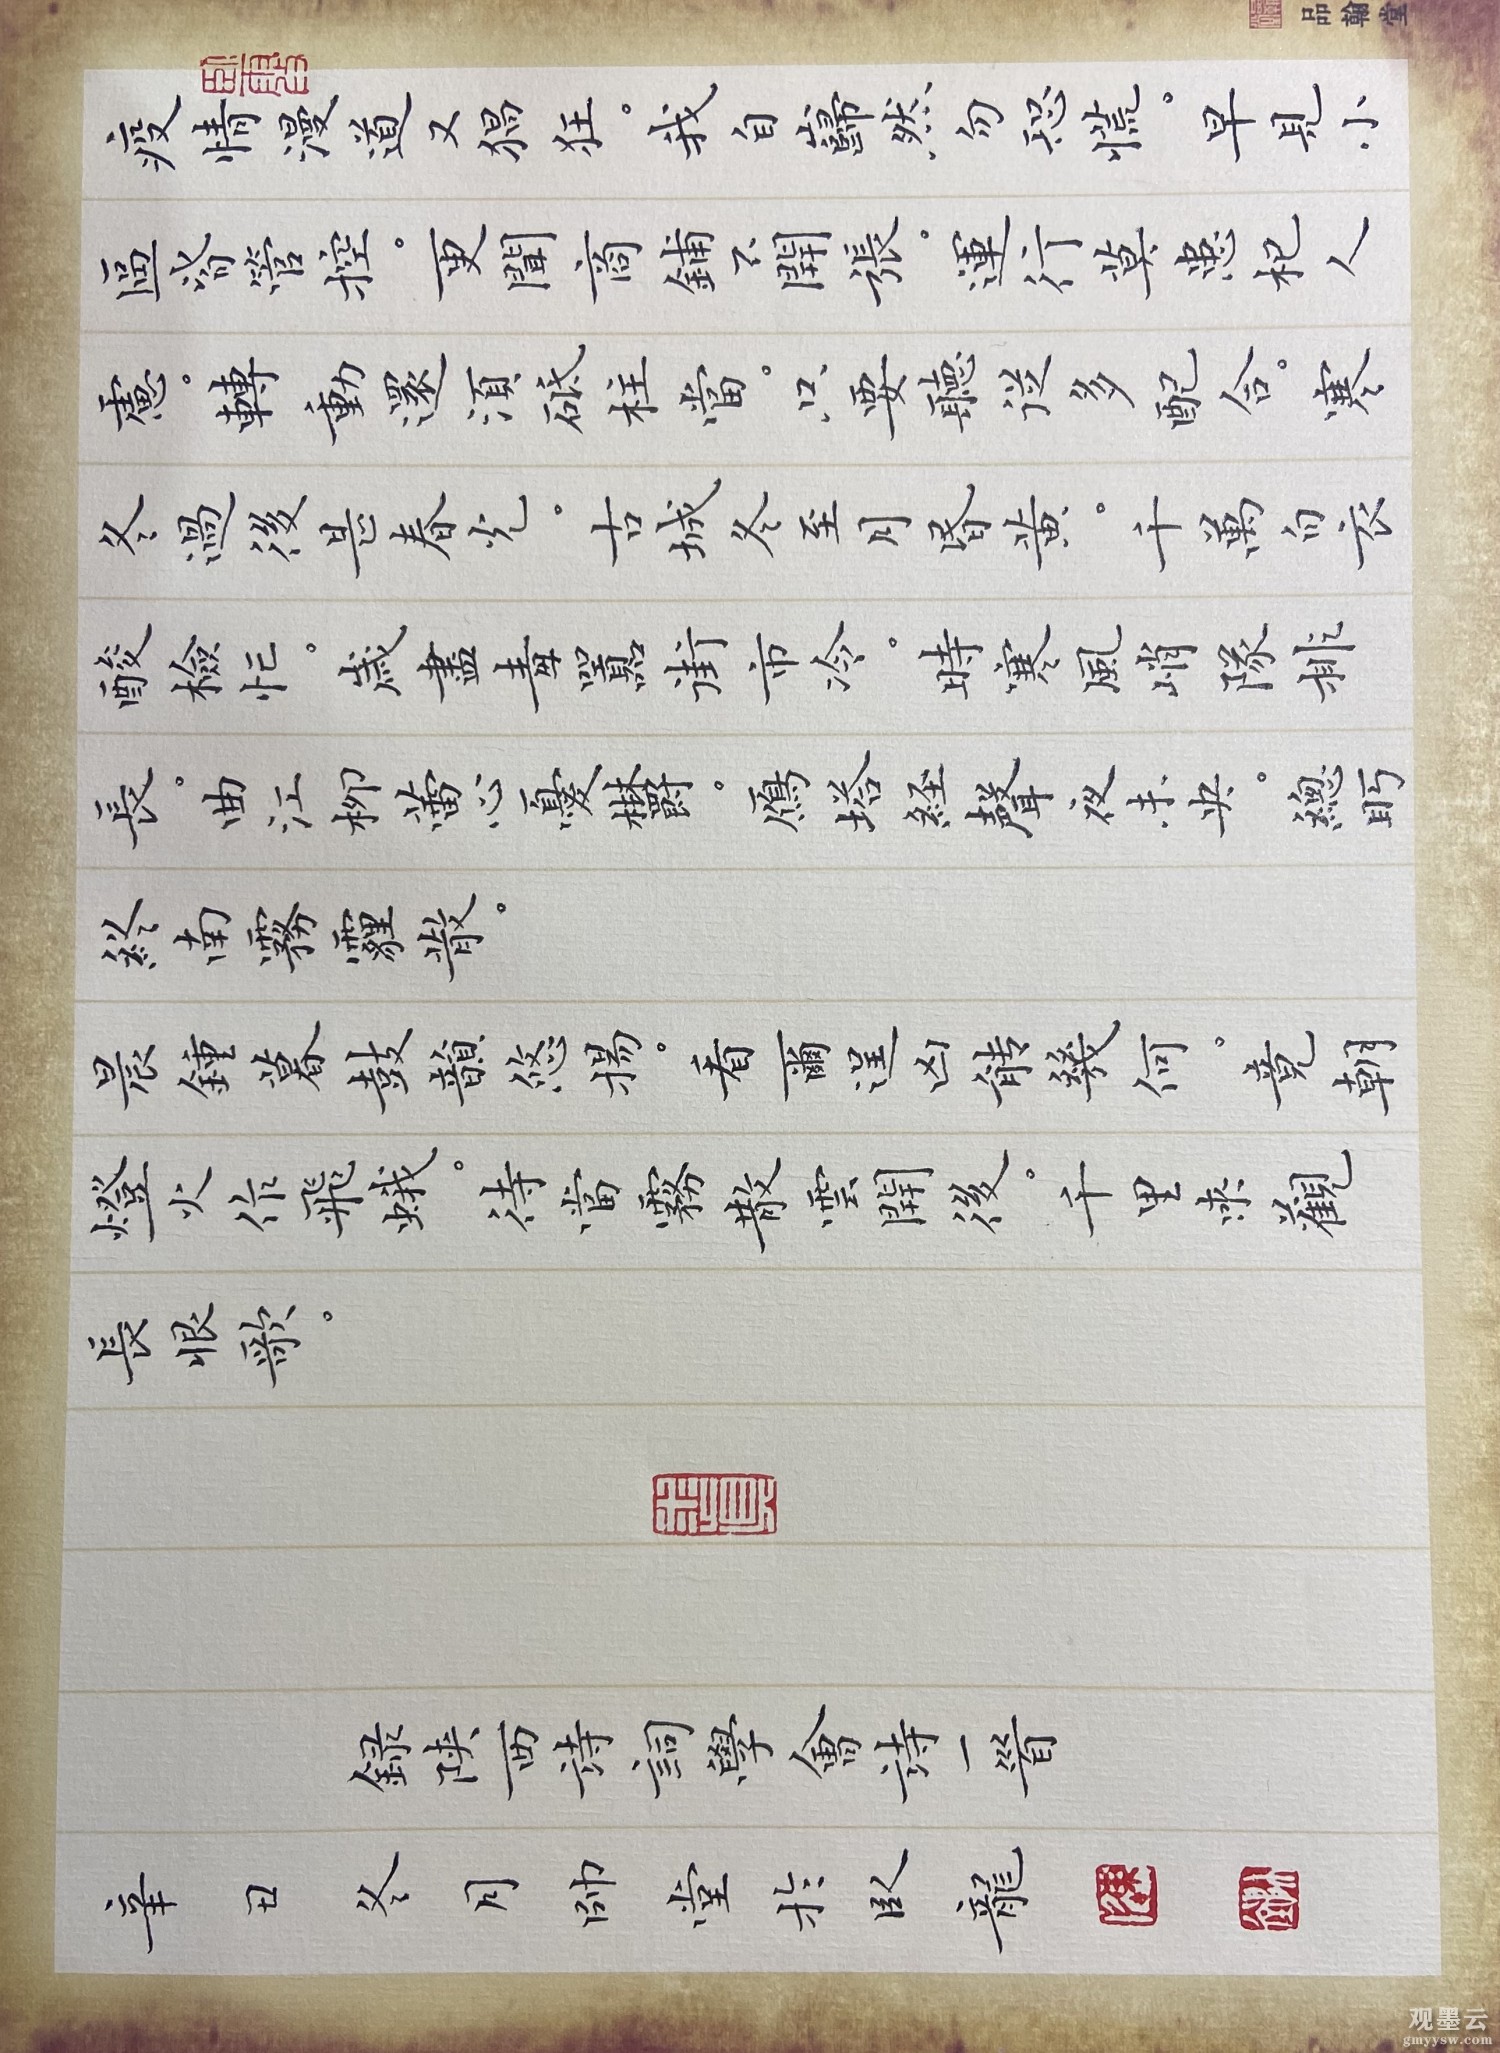 品翰堂
疫情漫道又猖狂。我自巋然勿恐慌。早見小
區皆管控。更聞商鋪不開張。運行莫患杞人
慮。轉動還須砥柱當。只要聽從多配合。寒
冬過後甚春光。古城冬至月昏黃。千萬白衣
酸檢忙。歲盡毒囂街市冷。時寒風峭隊排
長。曲江柳蕾心憂鬱。鴈塔經聲夜未央。總盼
終南霧霾散。
晨鍾暮鼓韻悠揚。看爾逞凶能幾何。竟朝
燈火作飛蛾。待當霧散雲開後。千里來觀
長恨歌。
錄陝西詩詞學會詩一首
辛丑冬月帥堂於臥龍
观墨云
gmyysw.com